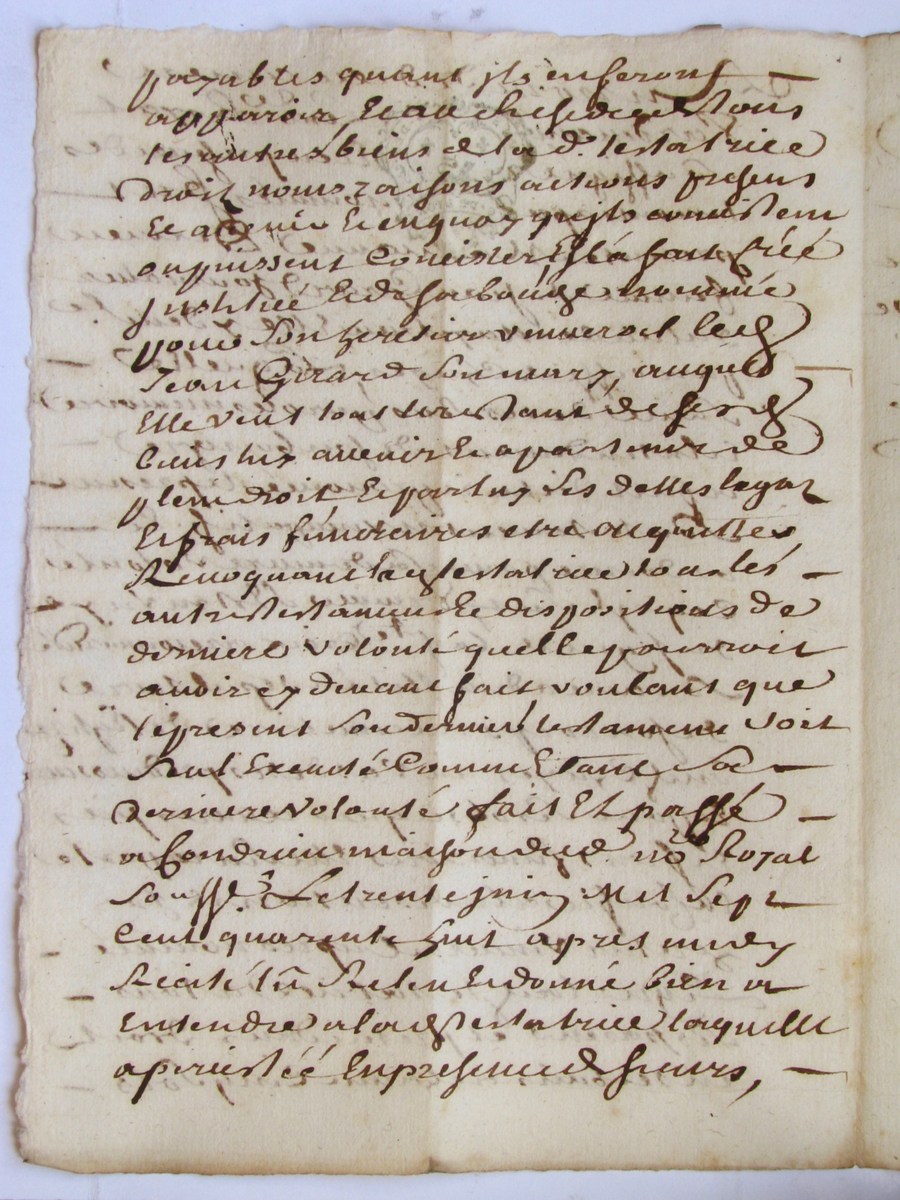 payables quant ils en feront
apparoir Et au residu de tous
les autres biens de lad. testatrice
droit noms raisons actions presens
Et avenir Et en quoy quils consistent
ou puissent Consister Elle a fait créé
Justitué Et de sa bouche nommé
pour Son heretier universel led
Jean Girard Son mary, auquel
Elle veut tout le restant de sesd
biens luy avenir Et apartenir de
plein droit Et partus ses dettes legaz
Et frais funeraires etre acquittés
Revoquant lad testatrice tous les
autres testaments Et dispositions de
derniere volonté quelle pourroit
avoir cy devant fait voulant que
le present Son dernier testament Soit
Seul Executé Comme Etant Sa
derniere volonté fait Et passé
a Condrieu maison dud. nore Royal
Soussé. Le trente juin Mil Sept
Cent quarente huit apres midy
Recité lû Releu Et donné bien a
Entendre a lad testatrice laquelle
a percisté En presence de sieurs,